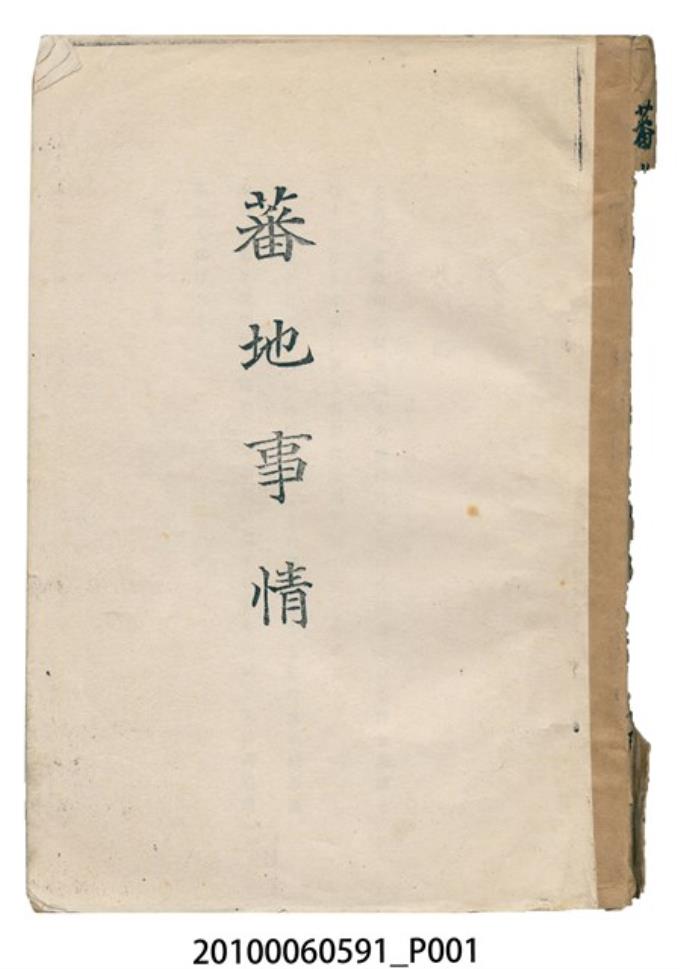 蕃地事情
蕃
20100060591_P001